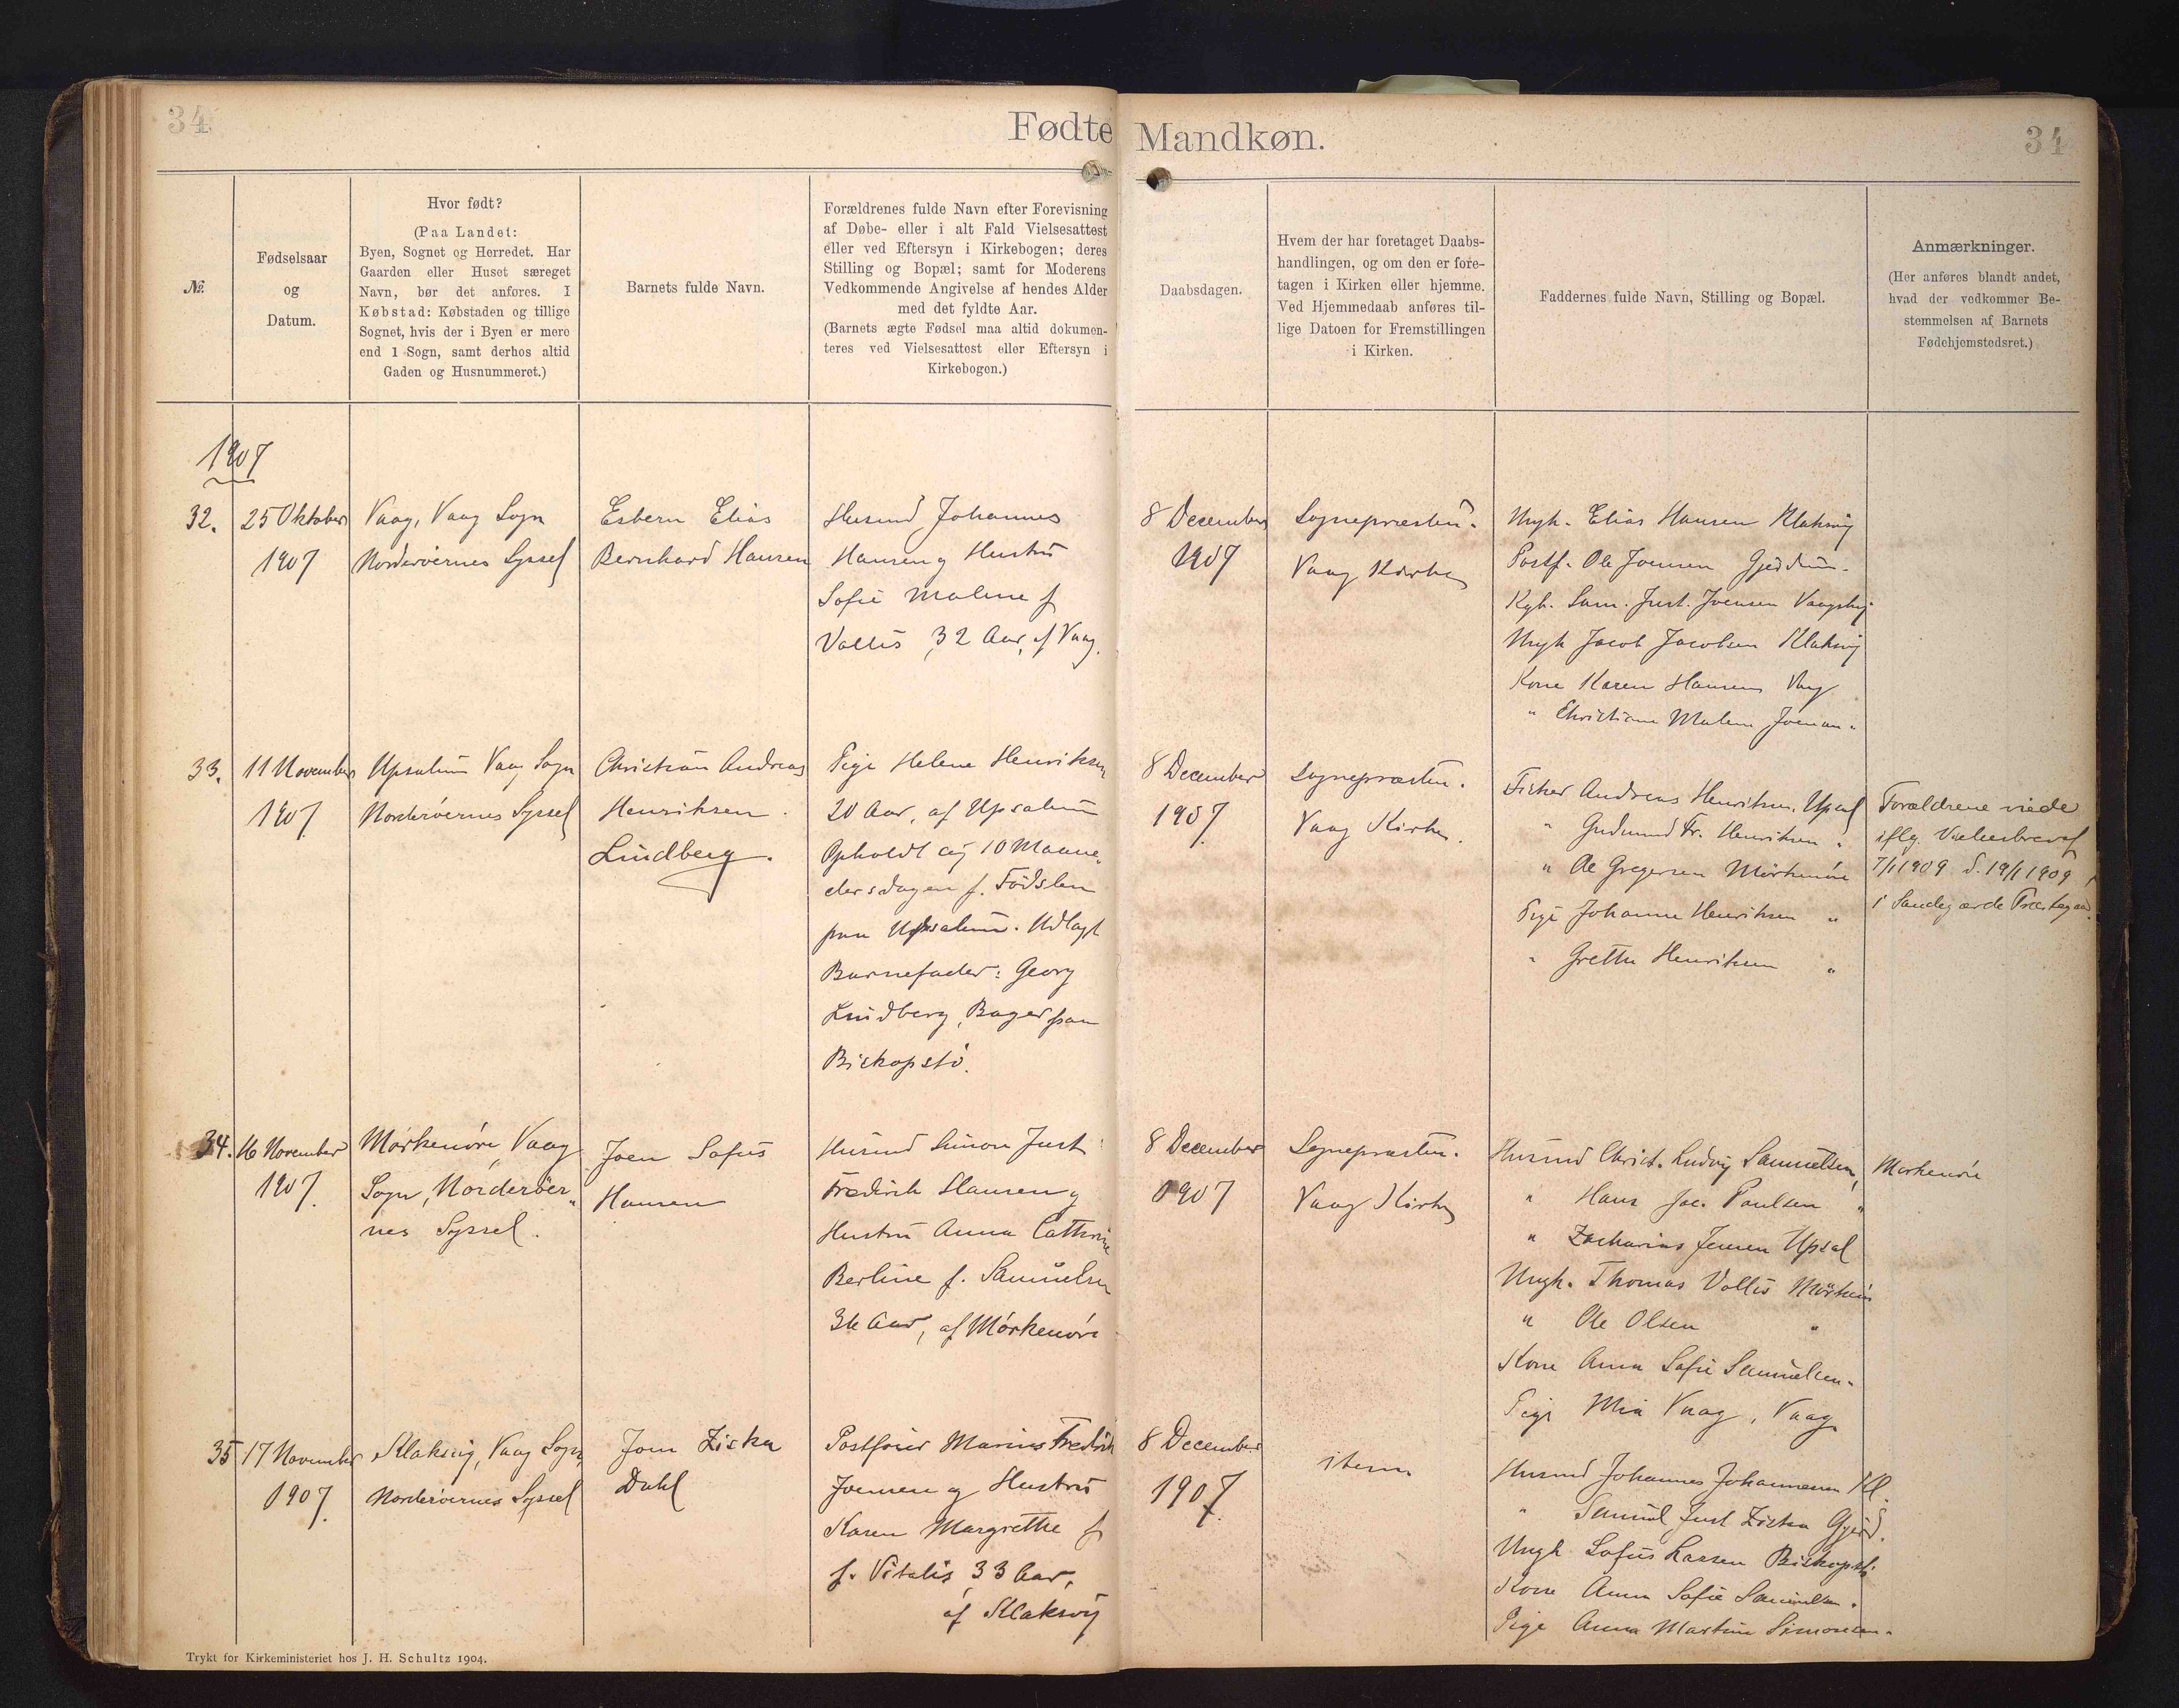 34
Fødte
Mandkøn.
34
№.
Fødselsaar
og
Datum.
Hvor født?
(Paa Landet:
Byen, Sognet og Herredet. Har
Gaarden eller Huset særeget
Navn, bør det anføres. I
Købstad: Købstaden og tillige
Sognet, hvis der i Byen er mere
end 1 Sogn, samt derhos altid
Gaden og Husnummeret.)
Barnets fulde Navn.
Forældrenes fulde Navn efter Forevisning
af Døbe- eller i alt Fald Vielsesattest
eller ved Eftersyn i Kirkebogen; deres
Stilling og Bopæl; samt for Moderens
Vedkommende Angivelse af hendes Alder
med det fyldte Aar.
(Barnets ægte Fødsel maa altid dokumen-
teres ved Vielsesattest eller Eftersyn i
Kirkebogen.)
Daabsdagen.
Hvem der har foretaget Daabs-
handlingen, og om den er fore-
tagen i Kirken eller hjemme.
Ved Hjemmedaab anføres til-
lige Datoen for Fremstillingen
i Kirken.
Faddernes fulde Navn, Stilling og Bopæl.
Anmærkninger.
(Her anføres blandt andet,
hvad der vedkommer Be-
stemmelsen af Barnets
Fødehjemstedsret.)
1907
32.
25 Oktober
1907
Vaag, Vaag Sogn
Norderøernes Syssel
Esbern Elias
Bernhard Hansen
Husmd Johannes
Hansen og Hustru
Sofie Malene f
Vallis, 32 Aar, af Vaag.
8 December
1907
Sognepræsten.
Vaag Kirke
Ungk. Elias Hansen Klaksvig
Postf. Ole Joensen
Sam. Just. Joensen
Ungk Jacob Jacobsen Klaksvig
Kone Karen Hansen Vaag
" Christiane Malene Joensen "
33.
11 November
1907
Upsalum Vaag Sogn
Norderøernes Syssel
Christian Andreas
Henriksen.
Lindberg.
Pige Helene Henriksen
20 Aar, af Upsalum
Opholdt sig 10 Maane„
dersdagen f. Fødslen
paa Upsalum. Udlagt
Barnefader: Georg
Lindberg, Bager paa
Biskopstø.
8 December
1907
Sognepræsten.
Vaag Kirke.
Fisker Andreas Henriksen, Upsal
" Gudmund Fr. Henriksen "
" Ole Gregersen Mørkenøre
Pige Johanne Henriksen "
" Grethe Henriksen "
Forældrene viede
iflg. Vielsesbrev af
7/1 1909 d. 19/1 1909
i Sandegærde Præstegaard.
34.
16 November
1907.
Mørkenøre, Vaag
Sogn, Norderøer„
nes Syssel.
Joen Sofus
Hansen
Husmd Simon Just
Fredrik Hansen og
Hustru Anna Cathrine
Berline f. Samuelsen
36 Aar, af Mørkenøre
8 December
1907
Sognepræsten.
Vaag Kirke
Husmd Christ. Ludvig Samuelsen, Mørkenøre
" Hans Jac. Poulsen "
" Zacharias Jensen Upsal
Ungk. Thomas Vallis Mørkenøre
" Ole Olsen "
Kone Anna Sofie Samuelsen "
Pige Mia Vaag, Vaag
35
17 November
1907.
Klaksvig, Vaag Sogn,
Norderøernes Syssel
Joen Ziska
Dahl
Postfører Marius Fredrik
Joensen og Hustru
Karen Margrethe f
f. Vitalis, 33 Aar,
af Klaksvig
8 December
1907.
item
Husmd Johannes Johannesen Kl.
" Samuel Just Ziska Gjerd.
Ungk Sofus Larsen Biskopstø
Kone Anna Sofie Samuelsen.
Pige Anna Martine Simonsen "
Trykt for Kirkeministeriet hos J. H. Schultz 1904.